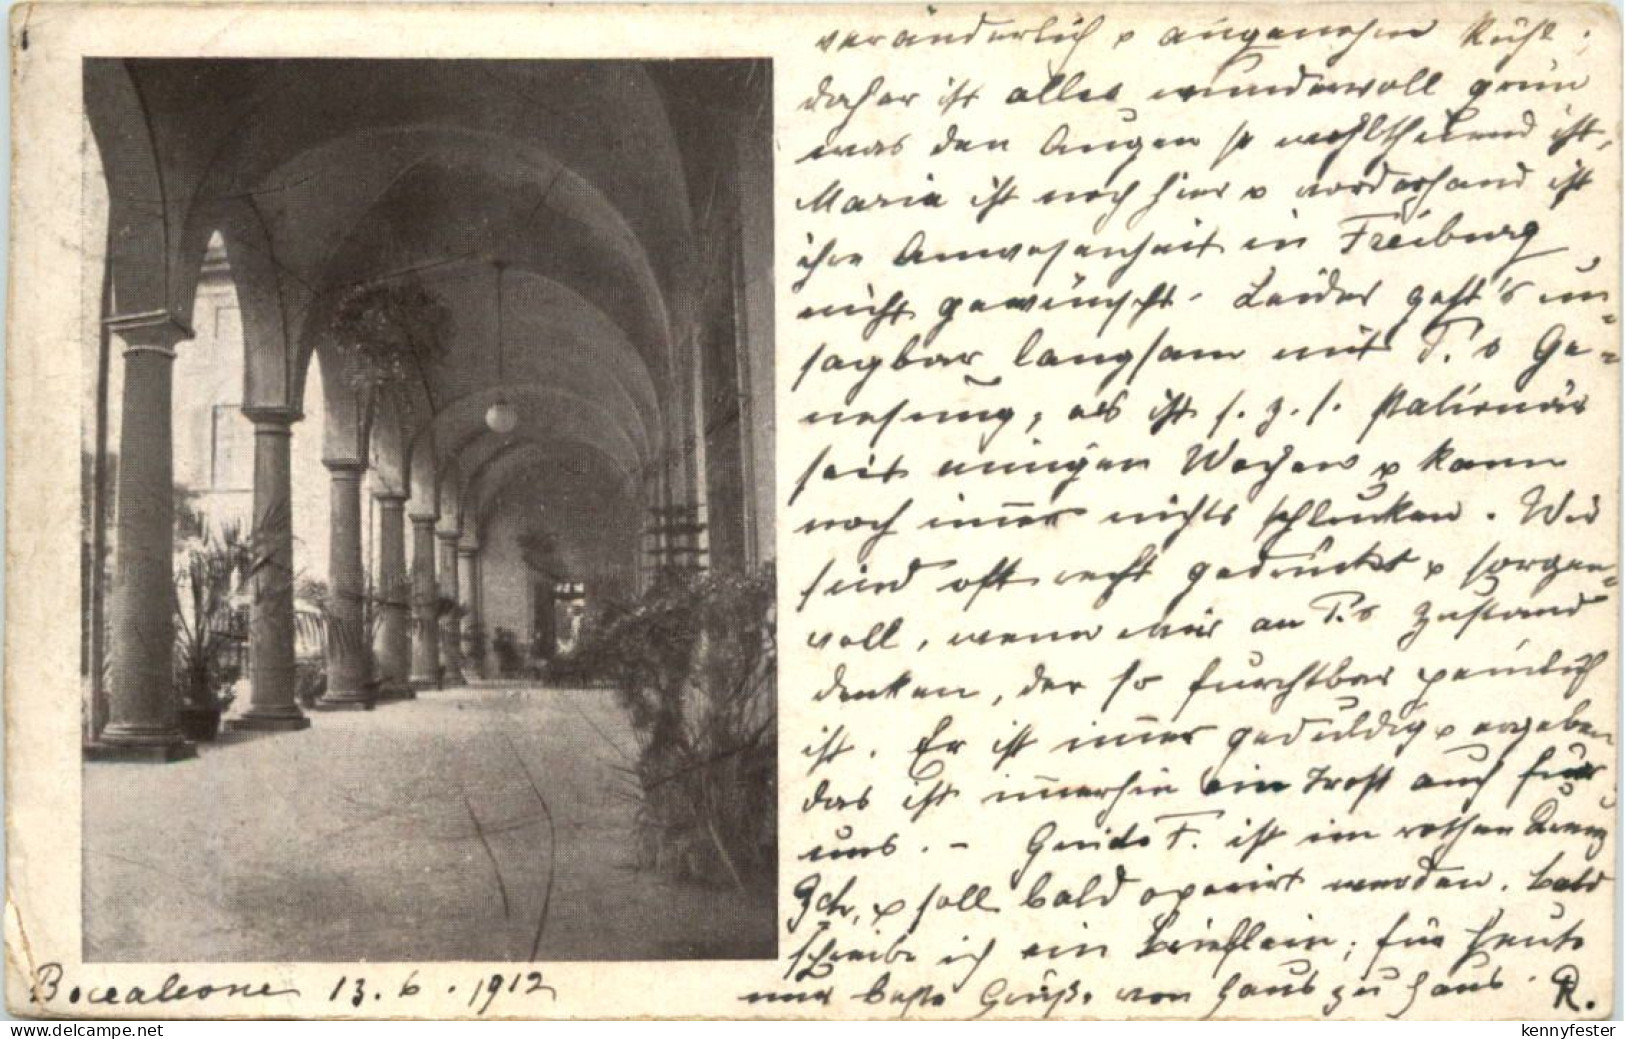 veränderlich u angenehm kühl;
daher ist alles wundervoll grün
was den Augen so wohlthuend ist,
Maria ist noch hier u vorderhand ist
ihre Anwesenheit in Freiburg
nicht gewünscht. Leider geht's un-
sagbar langsam mit T.s Ge-
nesung, es ist s. z. s. stationär
seit einigen Wochen u kann
noch im̅er nichts schlucken. Wir
sind oft recht gedrückt u sorgen-
voll, wenn wir an T.s Zustand
denken, der so furchtbar peinlich
ist. Er ist im̅er geduldig u ergeben
das ist im̅erhin ein Trost auch für
uns. - Guido F. ist im rothen Kreuz
u soll bald operirt werden. Bald
schreibe ich ein Brieflein; für heute
nur beste Grüße von Haus zu Haus. R.
Boccaleone 13. 6. 1912
www.delcampe.net
kennyfester